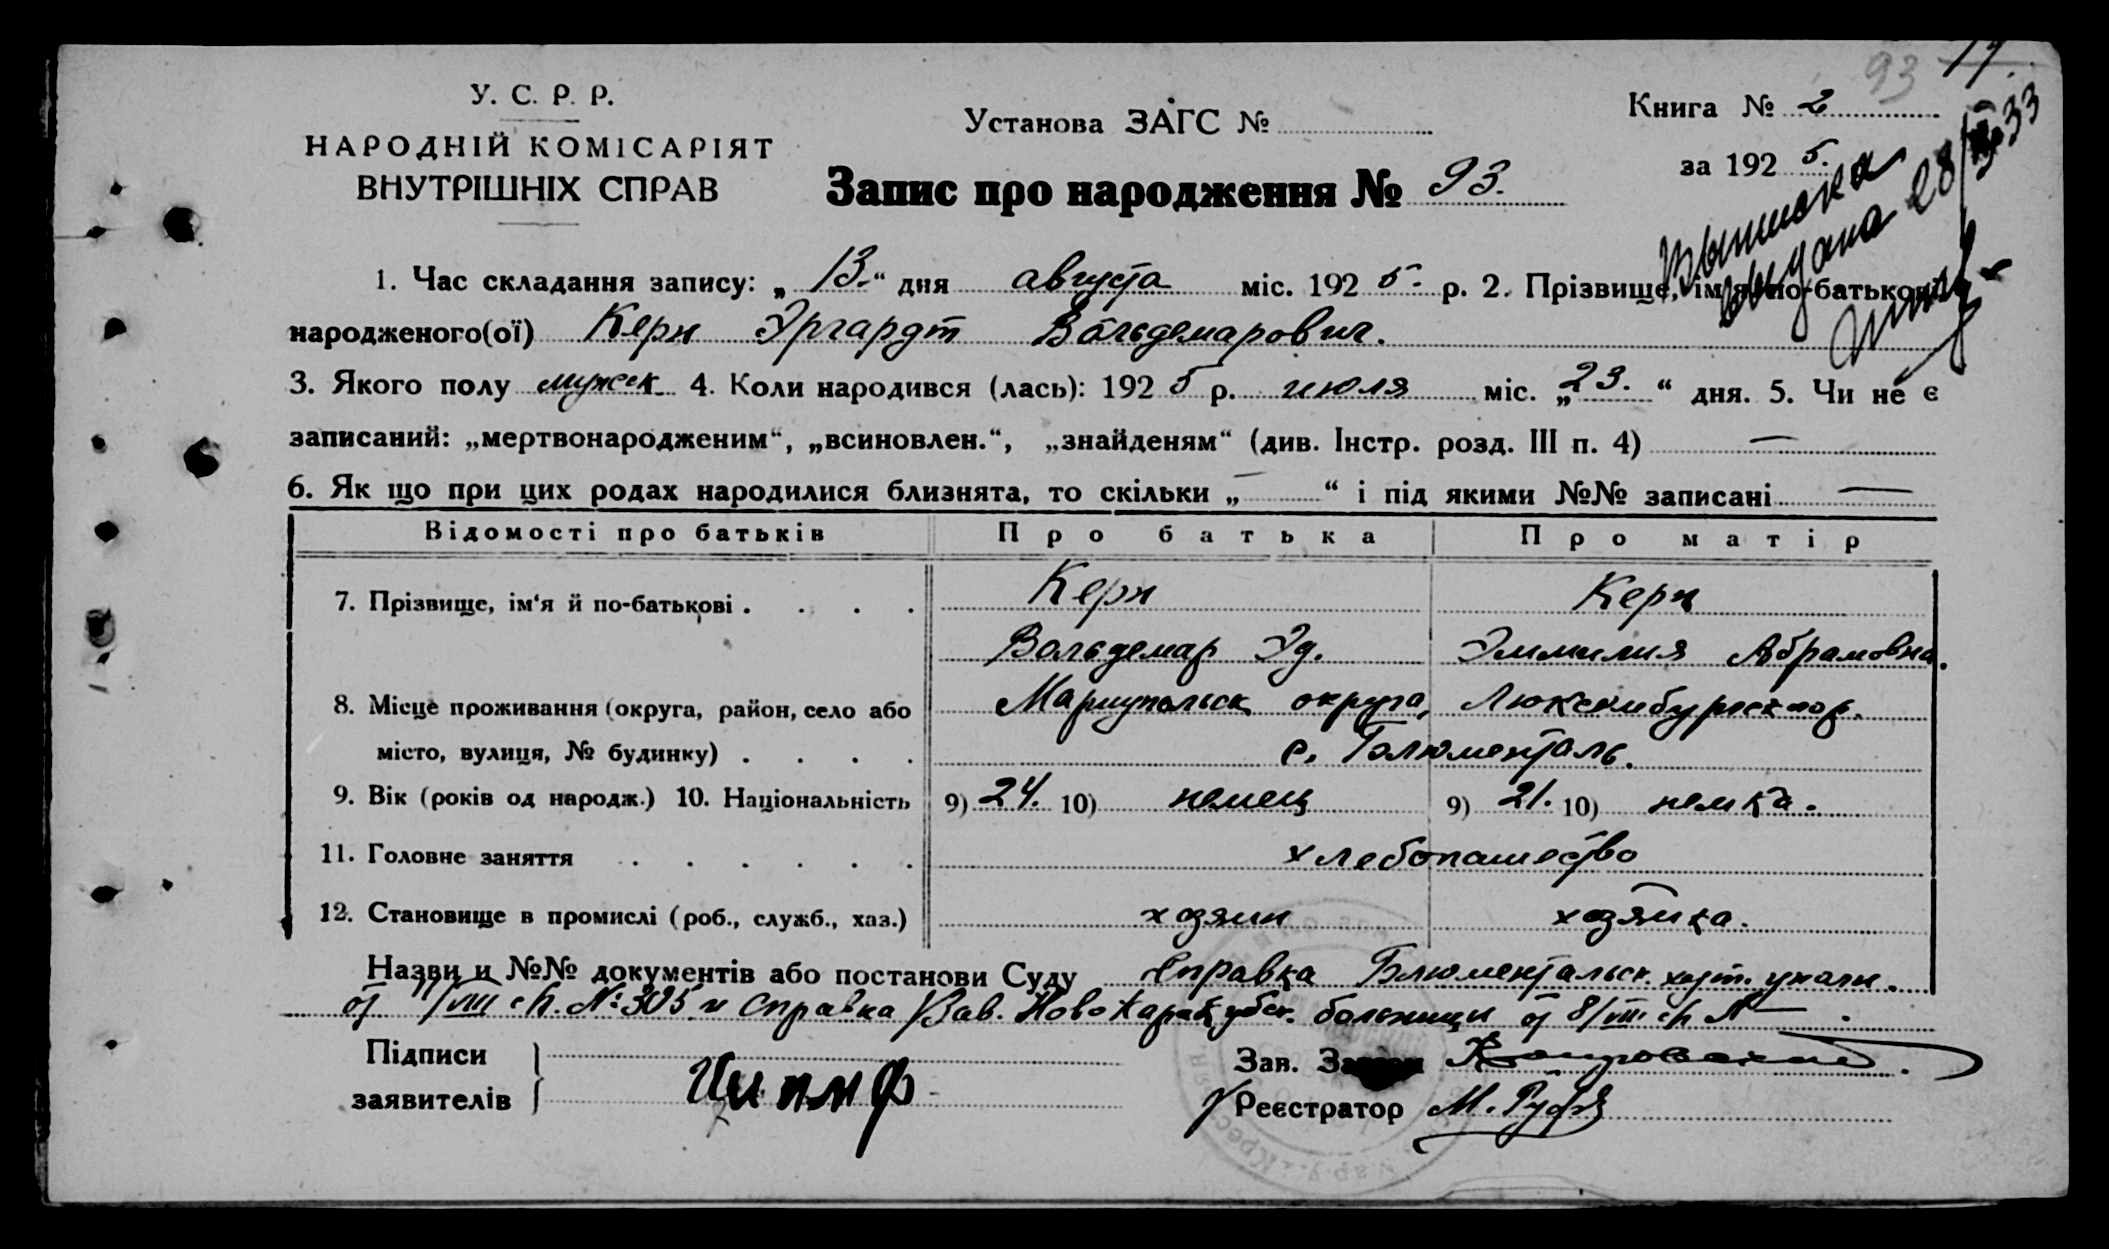 93
У. С. Р. Р.
НАРОДНІЙ КОМІСАРІЯТ
ВНУТРІШНІХ СПРАВ
Установа ЗАГС №
Запис про народження № 93.
Книга № 2
за 192 5.
Выписка
выдана 28/ 33
1. Час складання запису: „ 13.“ дня августа міс. 192 5. р. 2. Прізвище, ім'я по-батькові
народженого(ої) Керн Эргардт Вольдемарович.
3. Якого полу мужск. 4. Коли народився (лась): 192 5 р. июля міс. „23.“ дня. 5. Чи не є
записаний: „мертвонародженим“, „всиновлен.“, „знайденям“ (див. Інстр. розд. III п. 4) —
6. Як що при цих родах народилися близнята, то скільки „ — “ і під якими №№ записані —
Відомості про батьків Про батька Про матір
7. Прізвище, ім'я й по-батькові . . . . Керн Керн
Вольдемар Эд. Эммилия Абрамовна.
8. Місце проживання (округа, район, село або Мариупольск округа, Люксембургск
місто, вулиця, № будинку) . . . . с. Блюменталь.
9. Вік (років од народж.) 10. Національність 9) 24. 10) немец 9) 21. 10) немка.
11. Головне заняття . . . . . . хлебопашество
12. Становище в промислі (роб., служб., хаз.) хозяин хозяйка.
Назви и №№ документів або постанови Суду Справка Блюментальск.
от /VIII с/г. №305 и Справка Зав. Новокаракубск. больницы от 8/VIII с/г №— .
Підписи
заявителів
Зав.
Реєстратор М.